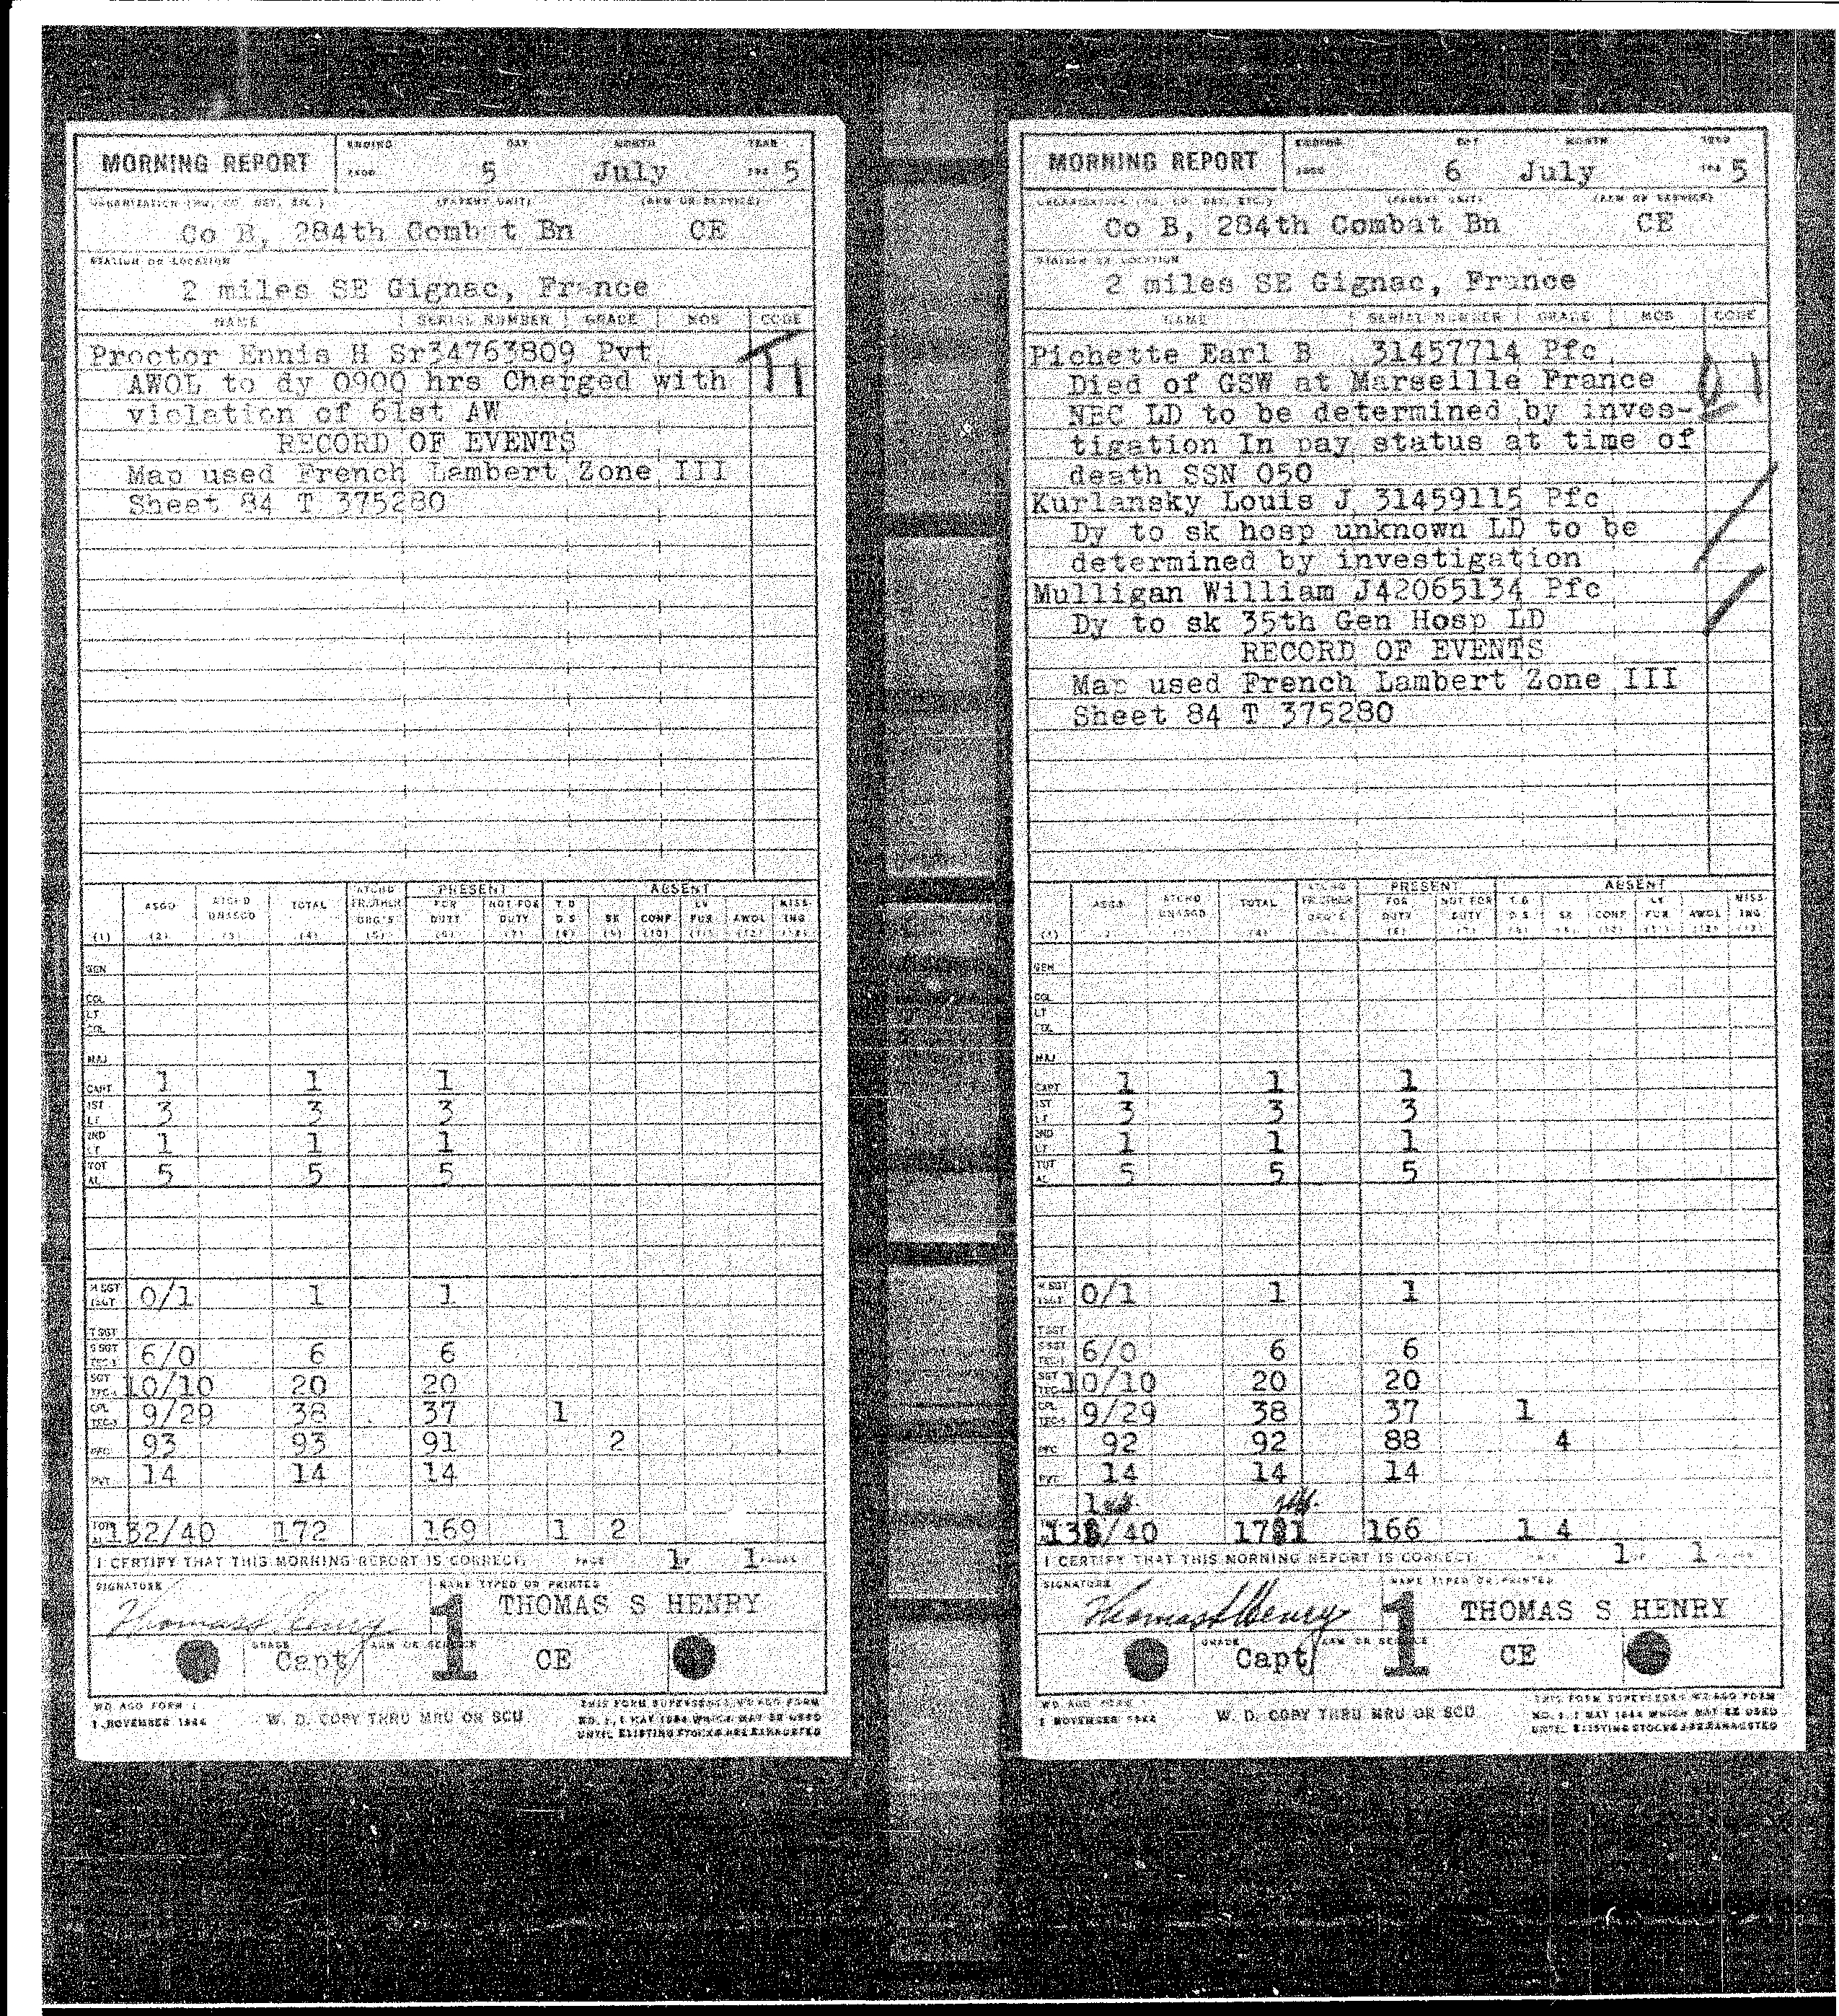 MORNING REPORT
ENDING DAY MONTH YEAR
5 July 5
ORGANIZATION (HQ, CO, DET, ETC.) (PARENT UNIT) (ARM OR SERVICE)
Co B, 284th Comb t Bn CE
STATION OR LOCATION
2 miles SE Gignac, France
NAME SERIAL NUMBER GRADE MOS CODE
Proctor Ennis H Sr34763809 Pvt
AWOL to dy 0900 hrs Charged with
violation of 61st AW
RECORD OF EVENTS
Map used French Lambert Zone III
Sheet 84 T 375280
ATCHD PRESENT ABSENT
ASGD ATCH D TOTAL FR OTHER FOR NOT FOR T.D LV MISS
UNASGD ORG'S DUTY DUTY D.S SK CONF FUR AWOL ING
(1) (2) (3) (4) (5) (6) (7) (8) (9) (10) (11) (12) (13)
GEN
COL
LT COL
MAJ
CAPT 1 1 1
1ST LT 3 3 3
2ND LT 1 1 1
TOTAL 5 5 5
M SGT 1SGT 0/1 1 1
T SGT
S SGT TEC-3 6/0 6 6
SGT TEC-4 10/10 20 20
CPL TEC-5 9/29 38 37 1
PFC 93 93 91 2
PVT 14 14 14
TOTAL 132/40 172 169 1 2
I CERTIFY THAT THIS MORNING REPORT IS CORRECT. PAGE 1 OF 1 PAGES
SIGNATURE NAME TYPED OR PRINTED
Thomas S Henry 1 THOMAS S HENRY
GRADE ARM OR SERVICE
Capt CE
WD AGO FORM 1
1 NOVEMBER 1944
W. D. COPY THRU MRU OR SCU
THIS FORM SUPERSEDES WD AGO FORM
NO. 1, 1 MAY 1944 WHICH MAY BE USED
UNTIL EXISTING STOCKS ARE EXHAUSTED
MORNING REPORT
ENDING DAY MONTH YEAR
6 July 5
ORGANIZATION (HQ, CO, DET, ETC.) (PARENT UNIT) (ARM OR SERVICE)
Co B, 284th Combat Bn CE
STATION OR LOCATION
2 miles SE Gignac, France
NAME SERIAL NUMBER GRADE MOS CODE
Pichette Earl B 31457714 Pfc
Died of GSW at Marseille France
NBC LD to be determined by inves-
tigation In pay status at time of
death SSN 050
Kurlansky Louis J 31459115 Pfc
Dy to sk hosp unknown LD to be
determined by investigation
Mulligan William J42065134 Pfc
Dy to sk 35th Gen Hosp LD
RECORD OF EVENTS
Map used French Lambert Zone III
Sheet 84 T 375280
ATCHD PRESENT ABSENT
ASGD ATCHD TOTAL FR OTHER FOR NOT FOR T.D LV MISS
UNASGD ORG'S DUTY DUTY D.S SK CONF FUR AWOL ING
GEN
COL
LT COL
MAJ
CAPT 1 1 1
1ST LT 3 3 3
2ND LT 1 1 1
TOTAL 5 5 5
M SGT 1SGT 0/1 1 1
T SGT
S SGT TEC-3 6/0 6 6
SGT TEC-4 10/10 20 20
CPL TEC-5 9/29 38 37 1
PFC 92 92 88 4
PVT 14 14 14
/40 166 1 4
I CERTIFY THAT THIS MORNING REPORT IS CORRECT. PAGE 1 OF 1
SIGNATURE NAME TYPED OR PRINTED
Thomas S Henry 1 THOMAS S HENRY
GRADE ARM OR SERVICE
Capt CE
WD AGO FORM 1
1 NOVEMBER 1944
W. D. COPY THRU MRU OR SCU
THIS FORM SUPERSEDES WD AGO FORM
NO. 1, 1 MAY 1944 WHICH MAY BE USED
UNTIL EXISTING STOCKS ARE EXHAUSTED